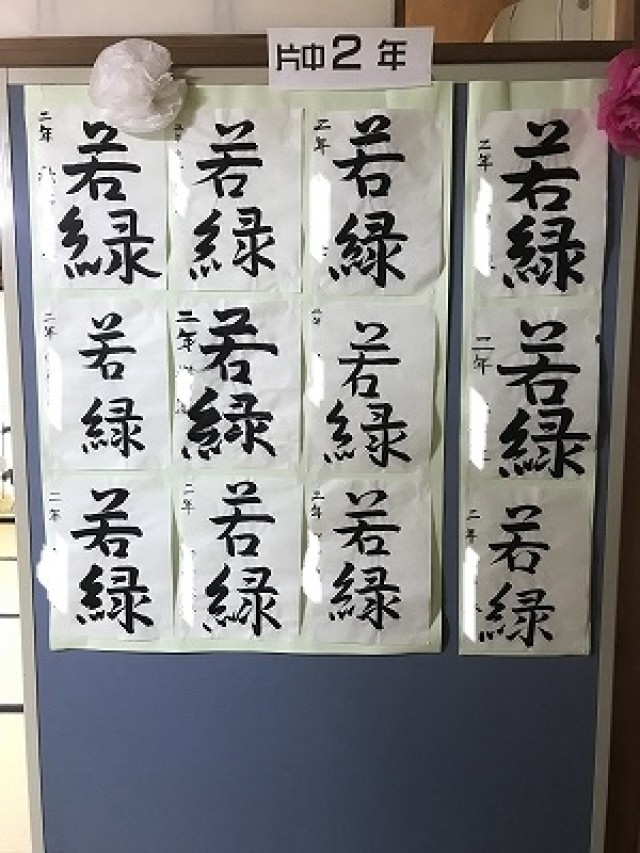 片中2年
二年
若緑
二年
若緑
二年
若緑
二年
若緑
二年
若緑
二年
若緑
二年
若緑
二年
若緑
二年
若緑
二年
若緑
二年
若緑
二年
若緑